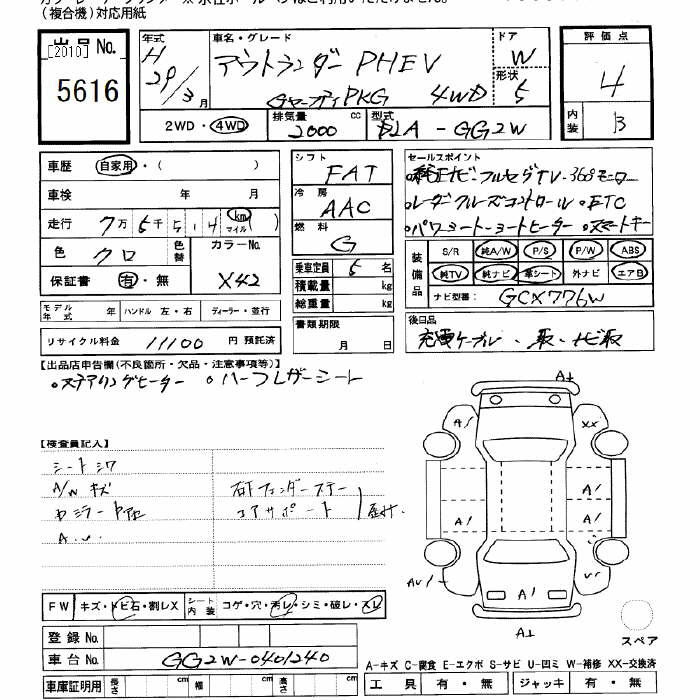 （複合機）対応用紙
出品No.
[2010]
5616
年式
H
29/3月
車名・グレード
アウトランダーPHEV
Gセーフティ PKG 4WD
ドア
W
形状
5
評価点
4
内装
B
2WD・4WD
排気量 cc
2000
型式
DLA-GG2W
車歴 自家用・（ ）
車検 年 月
走行 7万5千5,14 km マイル（ ）
色 クロ
色替
カラーNo.
X42
保証書 有・無
シフト
FAT
冷房
AAC
燃料
G
乗車定員 5名
積載量 kg
総重量 kg
書類期限
月 日
セールスポイント
○純正ナビ・フルセグTV・360°モニター
○レーダークルーズコントロール○ETC
○パワーシート・シートヒーター○スマートキー
装備品
S/R 純A/W P/S P/W ABS
純TV 純ナビ 革シート 外ナビ エアB
ナビ型番： GCX776W
後日品
充電ケーブル・取・ナビ取
モデル年式 年 ハンドル 左・右 ディーラー・並行
リサイクル料金 11100 円 預託済
【出品店申告欄(不良箇所・欠品・注意事項等)】
○ステアリングヒーター ○ハーフレザーシート
【検査員記入】
シートシワ
A/W キズ
右Fフェンダーステー
コアサポート
A.U.
A1
XX
A1
A1
A1
A1
A1
AU1
A1
FW キズ・トビ石・割レX
シート内装 コゲ・穴・汚レ・シミ・破レ・スレ
登録No.
車台No. GG2W-0401240
車庫証明用 長さ cm 幅 cm 高さ cm
スペア
A-キズ C-腐食 E-エクボ S-サビ U-凹ミ W-補修 XX-交換済
工具 有・無 ジャッキ 有・無